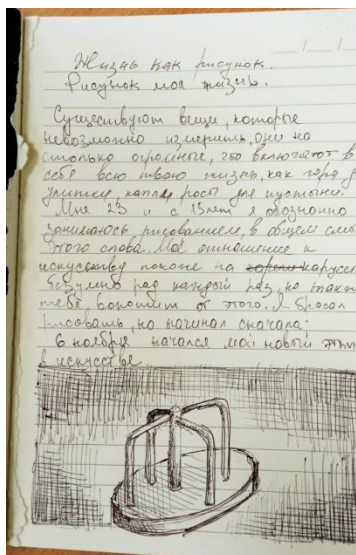 Жизнь как рисунок.
Рисунок моя жизнь.
Существуют вещи, которые
невозможно измерить, они на
столько огромные, что включают в
себя всю твою жизнь, как город для
улитки, капля росы для пустыни.
Мне 23 и с 15 лет я осознанно
занимаюсь рисованием, в общем смы
этого слова. Моё отношение к
искусству похоже на карусел
безумно рад каждый раз, но
тебя воротит от этого. Я бросал
рисовать, но начинал сначала.
6 ноября начался мой новый этап
в искусстве